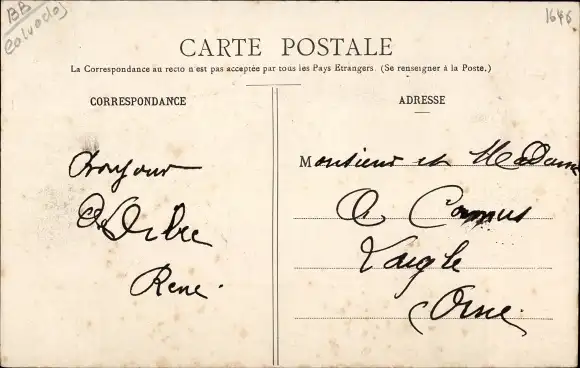 BB
Calvados
1646
CARTE POSTALE
La Correspondance au recto n'est pas acceptée par tous les Pays Etrangers. (Se renseigner à la Poste.)
CORRESPONDANCE
ADRESSE
Bonjour
René.
Monsieur et Madame
Camus
Laigle
Orne.